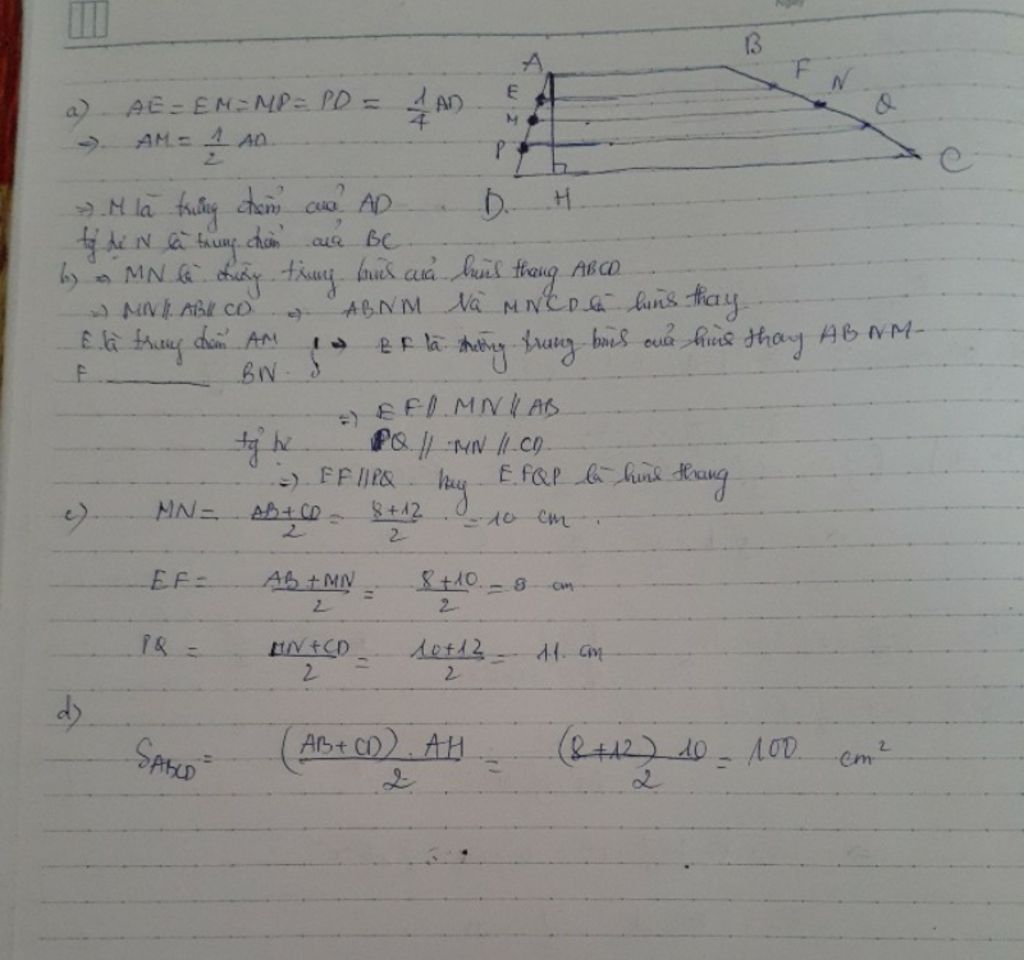 Ngày
A B F N Q C
E M P D. H
a) AE = EM = MP = PD = 1/4 AD
→ AM = 1/2 AD
=> M là trung điểm của AD
tg tự N là trung điểm của BC
b) → MN là đường trung bình của hình thang ABCD
→ MN // AB // CD → ABNM và MNCD là hình thang
E là trung điểm AM } → EF là đường trung bình của hình thang ABNM
F ______ BN
=> EF // MN // AB
tg tự PQ // MN // CD
=> EF // PQ hay EFQP là hình thang
c) MN = (AB + CD)/2 = (8 + 12)/2 = 10 cm.
EF = (AB + MN)/2 = (8 + 10)/2 = 8 cm
PQ = (MN + CD)/2 = (10 + 12)/2 = 11. cm
d)
S_ABCD = ((AB + CD). AH)/2 = ((8 + 12) 10)/2 = 100 cm²